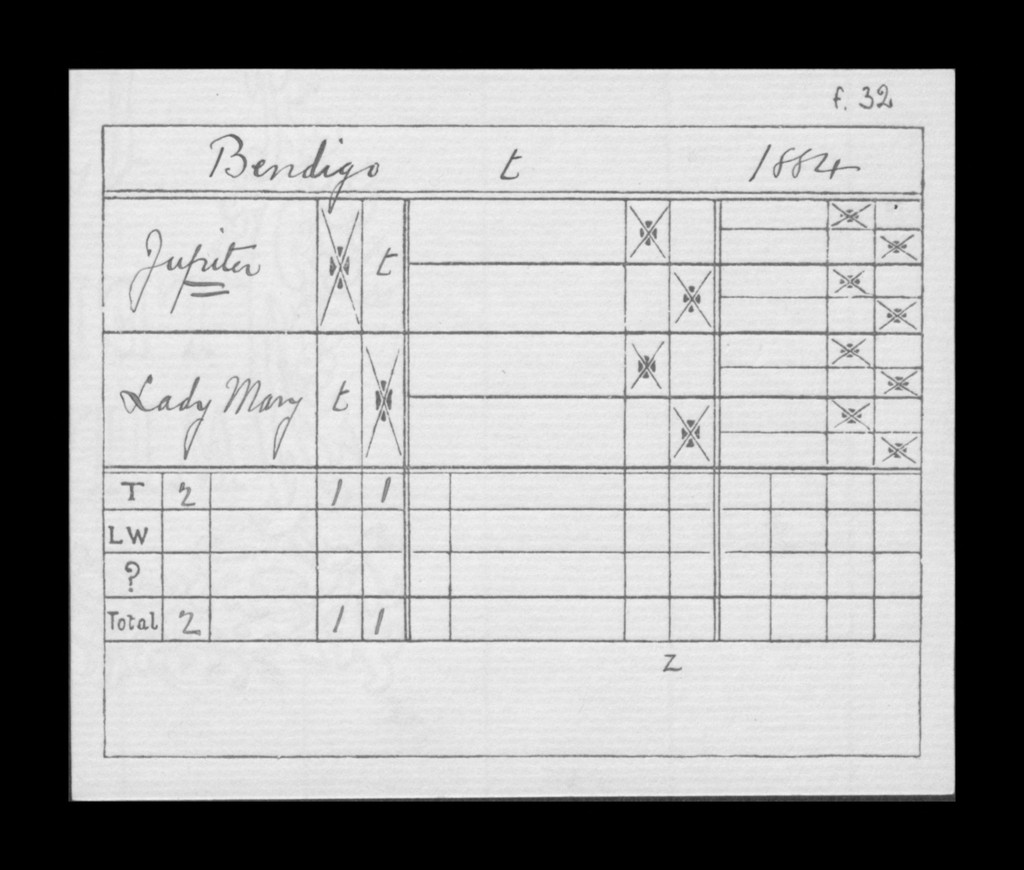 f. 32
Bendigo t 1884
Jupiter t
Lady Mary t
T 2 1 1
LW
?
Total 2 1 1
z